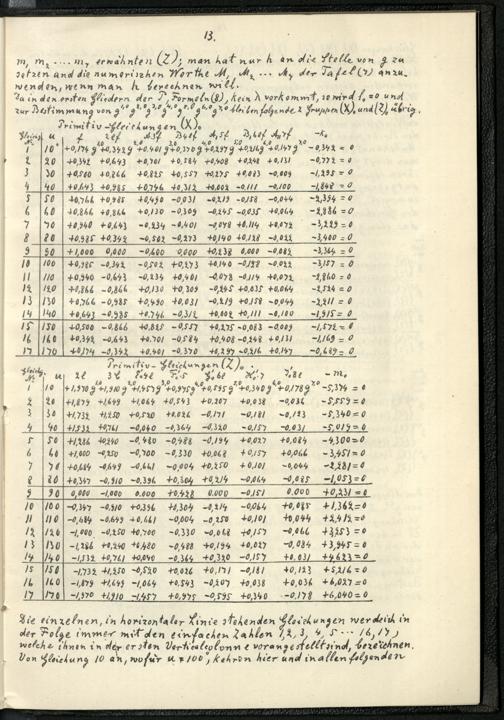 13.
m, m₂ .... m₇ erwähnten (Z); man hat nur h an die Stelle von g zu
setzen und die numerischen Werthe M, M₂ ... M₇ der Tafel (γ) anzu-
wenden, wenn man h berechnen will.
Da in den ersten Gliedern der Formeln (8), kein λ vorkommt, so wird l₀ = 0 und
zur Bestimmung von bleiben folgende 2 Gruppen (X)₀ und (Z)₀ übrig.
Primitiv-Gleichungen (X)₀
Gleichg. № u -k₀
1 10° +0,174 +0,342 +0,401 +0,370 +0,297 +0,216 +0,147 -0,342 = 0
2 20 +0,342 +0,643 +0,701 +0,584 +0,408 +0,248 +0,131 -0,772 = 0
3 30 +0,500 +0,866 +0,825 +0,557 +0,275 +0,083 -0,009 -1,295 = 0
4 40 +0,643 +0,985 +0,746 +0,312 +0,002 -0,111 -0,100 -1,848 = 0
5 50 +0,766 +0,985 +0,490 -0,031 -0,219 -0,158 -0,044 -2,394 = 0
6 60 +0,866 +0,866 +0,130 -0,309 -0,245 -0,035 +0,064 -2,886 = 0
7 70 +0,940 +0,643 -0,234 -0,401 -0,078 +0,114 +0,072 -3,229 = 0
8 80 +0,985 +0,342 -0,502 -0,273 +0,140 +0,128 -0,022 -3,400 = 0
9 90 +1,000 0,000 -0,600 0,000 +0,238 0,000 -0,082 -3,364 = 0
10 100 +0,985 -0,342 -0,502 +0,273 +0,140 -0,128 -0,022 -3,157 = 0
11 110 +0,940 -0,643 -0,234 +0,401 -0,078 -0,114 +0,072 -2,860 = 0
12 120 +0,866 -0,866 +0,130 +0,309 -0,245 +0,035 +0,064 -2,524 = 0
13 130 +0,766 -0,985 +0,490 +0,031 -0,219 +0,158 -0,044 -2,211 = 0
14 140 +0,643 -0,985 +0,746 -0,312 +0,002 +0,111 -0,100 -1,915 = 0
15 150 +0,500 -0,866 +0,825 -0,557 +0,275 -0,083 -0,009 -1,572 = 0
16 160 +0,342 -0,643 +0,701 -0,584 +0,408 -0,248 +0,131 -1,169 = 0
17 170 +0,174 -0,342 +0,401 -0,370 +0,297 -0,216 +0,147 -0,689 = 0
Primitiv-Gleichungen (Z)₀
Gleichg. № u -m₀
1 10 +1,970 +1,910 +1,457 +0,975 +0,595 +0,340 +0,178 -5,374 = 0
2 20 +1,879 +1,649 +1,064 +0,543 +0,207 +0,038 -0,036 -5,559 = 0
3 30 +1,732 +1,250 +0,520 +0,026 -0,171 -0,181 -0,123 -5,340 = 0
4 40 +1,532 +0,761 -0,040 -0,364 -0,320 -0,157 -0,031 -5,019 = 0
5 50 +1,286 +0,240 -0,480 -0,488 -0,194 +0,027 +0,084 -4,300 = 0
6 60 +1,000 -0,250 -0,700 -0,330 +0,068 +0,157 +0,066 -3,451 = 0
7 70 +0,684 -0,649 -0,661 -0,004 +0,250 +0,101 -0,044 -2,281 = 0
8 80 +0,347 -0,910 -0,396 +0,304 +0,214 -0,064 -0,085 -1,053 = 0
9 90 0,000 -1,000 0,000 +0,428 0,000 -0,151 0,000 +0,231 = 0
10 100 -0,347 -0,910 +0,396 +0,304 -0,214 -0,064 +0,085 +1,362 = 0
11 110 -0,684 -0,649 +0,661 -0,004 -0,250 +0,101 +0,044 +2,412 = 0
12 120 -1,000 -0,250 +0,700 -0,330 -0,068 +0,157 -0,066 +3,253 = 0
13 130 -1,286 +0,240 +0,480 -0,488 +0,194 +0,027 -0,084 +3,945 = 0
14 140 -1,532 +0,761 +0,040 -0,364 +0,320 -0,157 +0,031 +4,623 = 0
15 150 -1,732 +1,250 -0,520 +0,026 +0,171 -0,181 +0,123 +5,216 = 0
16 160 -1,879 +1,649 -1,064 +0,543 -0,207 +0,038 +0,036 +6,027 = 0
17 170 -1,970 +1,910 -1,457 +0,975 -0,595 +0,340 -0,178 +6,040 = 0
Die einzelnen, in horizontaler Linie stehenden Gleichungen werde ich in
der Folge immer mit den einfachen Zahlen 1, 2, 3, 4, 5 ... 16, 17,
welche ihnen in der ersten Verticalcolonne vorangestellt sind, bezeichnen.
Von Gleichung 10 an, wofür u = 100°, kehren hier und in allen folgenden